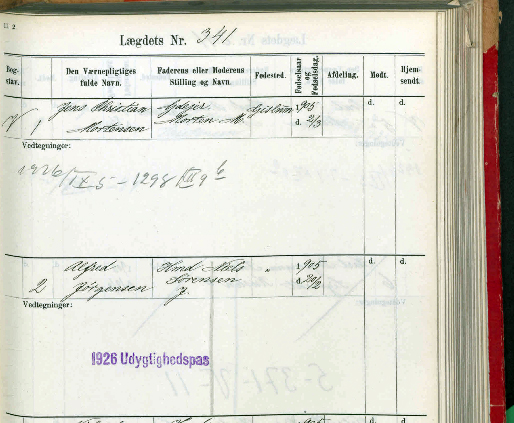 Lægdets Nr. 341
Bog-
stav.
Den Værnepligtiges
fulde Navn.
Faderens eller Moderens
Stilling og Navn.
Fødested.
Fødselsaar
og
Fødselsdag.
Afdeling.
Mødt.
Hjem-
sendt.
1
Jens Christian
Mortensen
Morten M.
Gislum
1905
d. 2/3
d.
d.
Vedtegninger:
1926
2
Alfred
Jørgensen
Hmd Niels
Sørensen
J.
"
1905
d. 20/2
d.
d.
Vedtegninger:
1926 Udygtighedspas
1905
d.
d.